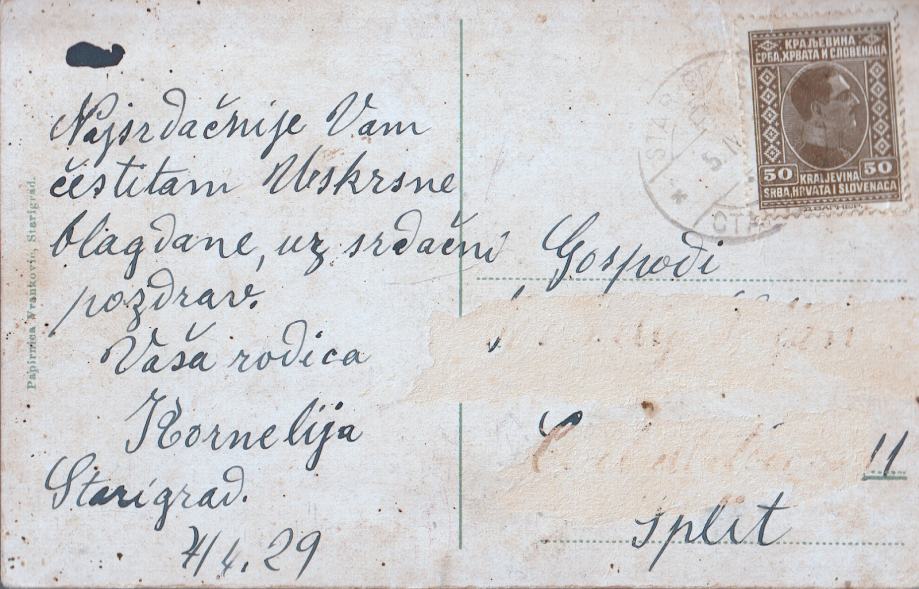 Najsrdačnije Vam
čestitam Uskrsne
blagdane, uz srdačni
pozdrav.
Vaša rodica
Kornelija
Starigrad.
4/4. 29
Papirnica Vranković, Starigrad.
КРАЉЕВИНА
СРБА, ХРВАТА И СЛОВЕНАЦА
50 50
KRALJEVINA
SRBA, HRVATA I SLOVENACA
Gospođi
11
Split